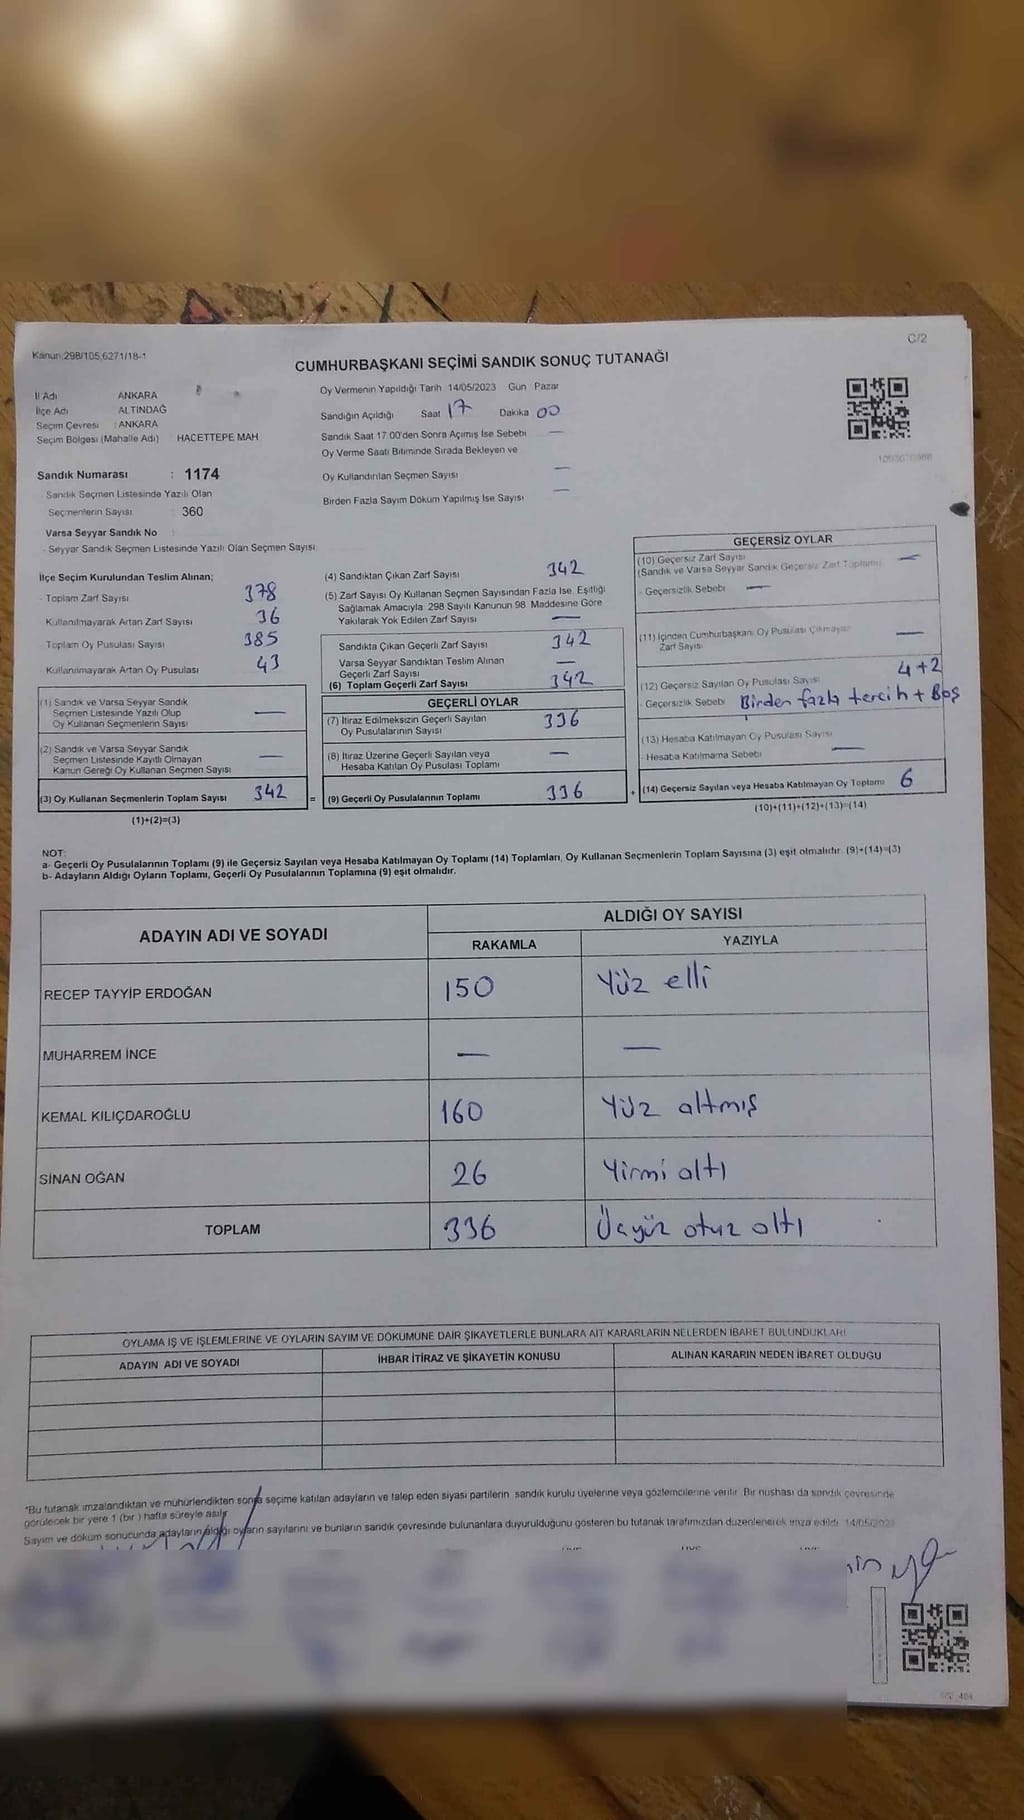 C/2
Kanun:298/105,6271/18-1
CUMHURBAŞKANI SEÇİMİ SANDIK SONUÇ TUTANAĞI
İl Adı ANKARA
İlçe Adı ALTINDAĞ
Seçim Çevresi : ANKARA
Seçim Bölgesi (Mahalle Adı) : HACETTEPE MAH
Sandık Numarası : 1174
Sandık Seçmen Listesinde Yazılı Olan
Seçmenlerin Sayısı 360
Varsa Seyyar Sandık No
- Seyyar Sandık Seçmen Listesinde Yazılı Olan Seçmen Sayısı
Oy Vermenin Yapıldığı Tarih 14/05/2023 Gün Pazar
Sandığın Açıldığı Saat 17 Dakika 00
Sandık Saat 17:00'den Sonra Açımış İse Sebebi —
Oy Verme Saati Bitiminde Sırada Bekleyen ve
Oy Kullandırılan Seçmen Sayısı —
Birden Fazla Sayım Döküm Yapılmış İse Sayısı —
İlçe Seçim Kurulundan Teslim Alınan;
- Toplam Zarf Sayısı 378
- Kullanılmayarak Artan Zarf Sayısı 36
- Toplam Oy Pusulası Sayısı 385
- Kullanılmayarak Artan Oy Pusulası 43
(1) Sandık ve Varsa Seyyar Sandık
Seçmen Listesinde Yazılı Olup
Oy Kullanan Seçmenlerin Sayısı —
(2) Sandık ve Varsa Seyyar Sandık
Seçmen Listesinde Kayıtlı Olmayan
Kanun Gereği Oy Kullanan Seçmen Sayısı —
(3) Oy Kullanan Seçmenlerin Toplam Sayısı 342 =
(1)+(2)=(3)
(4) Sandıktan Çıkan Zarf Sayısı 342
(5) Zarf Sayısı Oy Kullanan Seçmen Sayısından Fazla İse, Eşitliği
Sağlamak Amacıyla 298 Sayılı Kanunun 98. Maddesine Göre
Yakılarak Yok Edilen Zarf Sayısı —
Sandıkta Çıkan Geçerli Zarf Sayısı 342
Varsa Seyyar Sandıktan Teslim Alınan
Geçerli Zarf Sayısı —
(6) Toplam Geçerli Zarf Sayısı 342
GEÇERLİ OYLAR
(7) İtiraz Edilmeksizin Geçerli Sayılan
Oy Pusulalarının Sayısı 336
(8) İtiraz Üzerine Geçerli Sayılan veya
Hesaba Katılan Oy Pusulası Toplamı —
(9) Geçerli Oy Pusulalarının Toplamı 336 +
GEÇERSİZ OYLAR
(10) Geçersiz Zarf Sayısı —
(Sandık ve Varsa Seyyar Sandık Geçersiz Zarf Toplamı)
- Geçersizlik Sebebi —
(11) İçinden Cumhurbaşkanı Oy Pusulası Çıkmayan
Zarf Sayısı —
(12) Geçersiz Sayılan Oy Pusulası Sayısı 4+2
- Geçersizlik Sebebi Birden fazla tercih + Boş
(13) Hesaba Katılmayan Oy Pusulası Sayısı
- Hesaba Katılmama Sebebi —
(14) Geçersiz Sayılan veya Hesaba Katılmayan Oy Toplamı 6
(10)+(11)+(12)+(13)=(14)
NOT:
a- Geçerli Oy Pusulalarının Toplamı (9) ile Geçersiz Sayılan veya Hesaba Katılmayan Oy Toplamı (14) Toplamları, Oy Kullanan Seçmenlerin Toplam Sayısına (3) eşit olmalıdır. (9)+(14)=(3)
b- Adayların Aldığı Oyların Toplamı, Geçerli Oy Pusulalarının Toplamına (9) eşit olmalıdır.
ADAYIN ADI VE SOYADI ALDIĞI OY SAYISI
RAKAMLA YAZIYLA
RECEP TAYYİP ERDOĞAN 150 Yüz elli
MUHARREM İNCE — —
KEMAL KILIÇDAROĞLU 160 Yüz altmış
SİNAN OĞAN 26 Yirmi altı
TOPLAM 336 Üçyüz otuz altı
OYLAMA İŞ VE İŞLEMLERİNE VE OYLARIN SAYIM VE DÖKÜMÜNE DAİR ŞİKAYETLERLE BUNLARA AİT KARARLARIN NELERDEN İBARET BULUNDUKLARI
ADAYIN ADI VE SOYADI İHBAR İTİRAZ VE ŞİKAYETİN KONUSU ALINAN KARARIN NEDEN İBARET OLDUĞU
"Bu tutanak imzalandıktan ve mühürlendikten sonra seçime katılan adayların ve talep eden siyasi partilerin sandık kurulu üyelerine veya gözlemcilerine verilir. Bir nüshası da sandık çevresinde
görülecek bir yere 1 (bir) hafta süreyle asılır
Sayım ve döküm sonucunda adayların aldığı oyların sayılarını ve bunların sandık çevresinde bulunanlara duyurulduğunu gösteren bu tutanak tarafımızdan düzenlenerek imza edildi. 14/05/2023